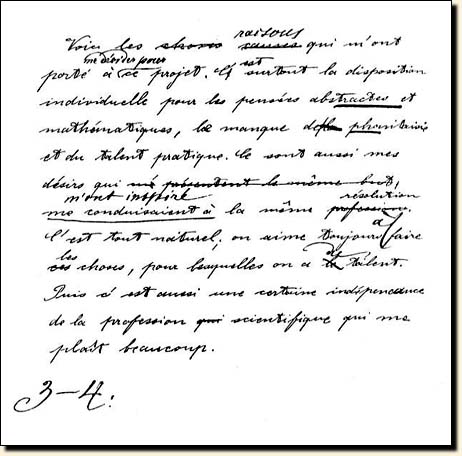 raisons
Voici les choses causes qui m'ont
me décider pour est
porté à ce projet. C' surtout la disposition
individuelle pour les pensées abstractes et
mathématiques, le manque de la phantaisie
et du talent pratique. Ce sont aussi mes
désirs qui me présentent le même but,
m'ont inspiré résolution
me conduisaient à la même profession.
à
C'est tout naturel, on aime toujours faire
les de
ces choses, pour lesquelles on a le talent.
Puis c'est aussi une certaine indépendance
de la profession qui scientifique qui me
plaît beaucoup.
3-4.